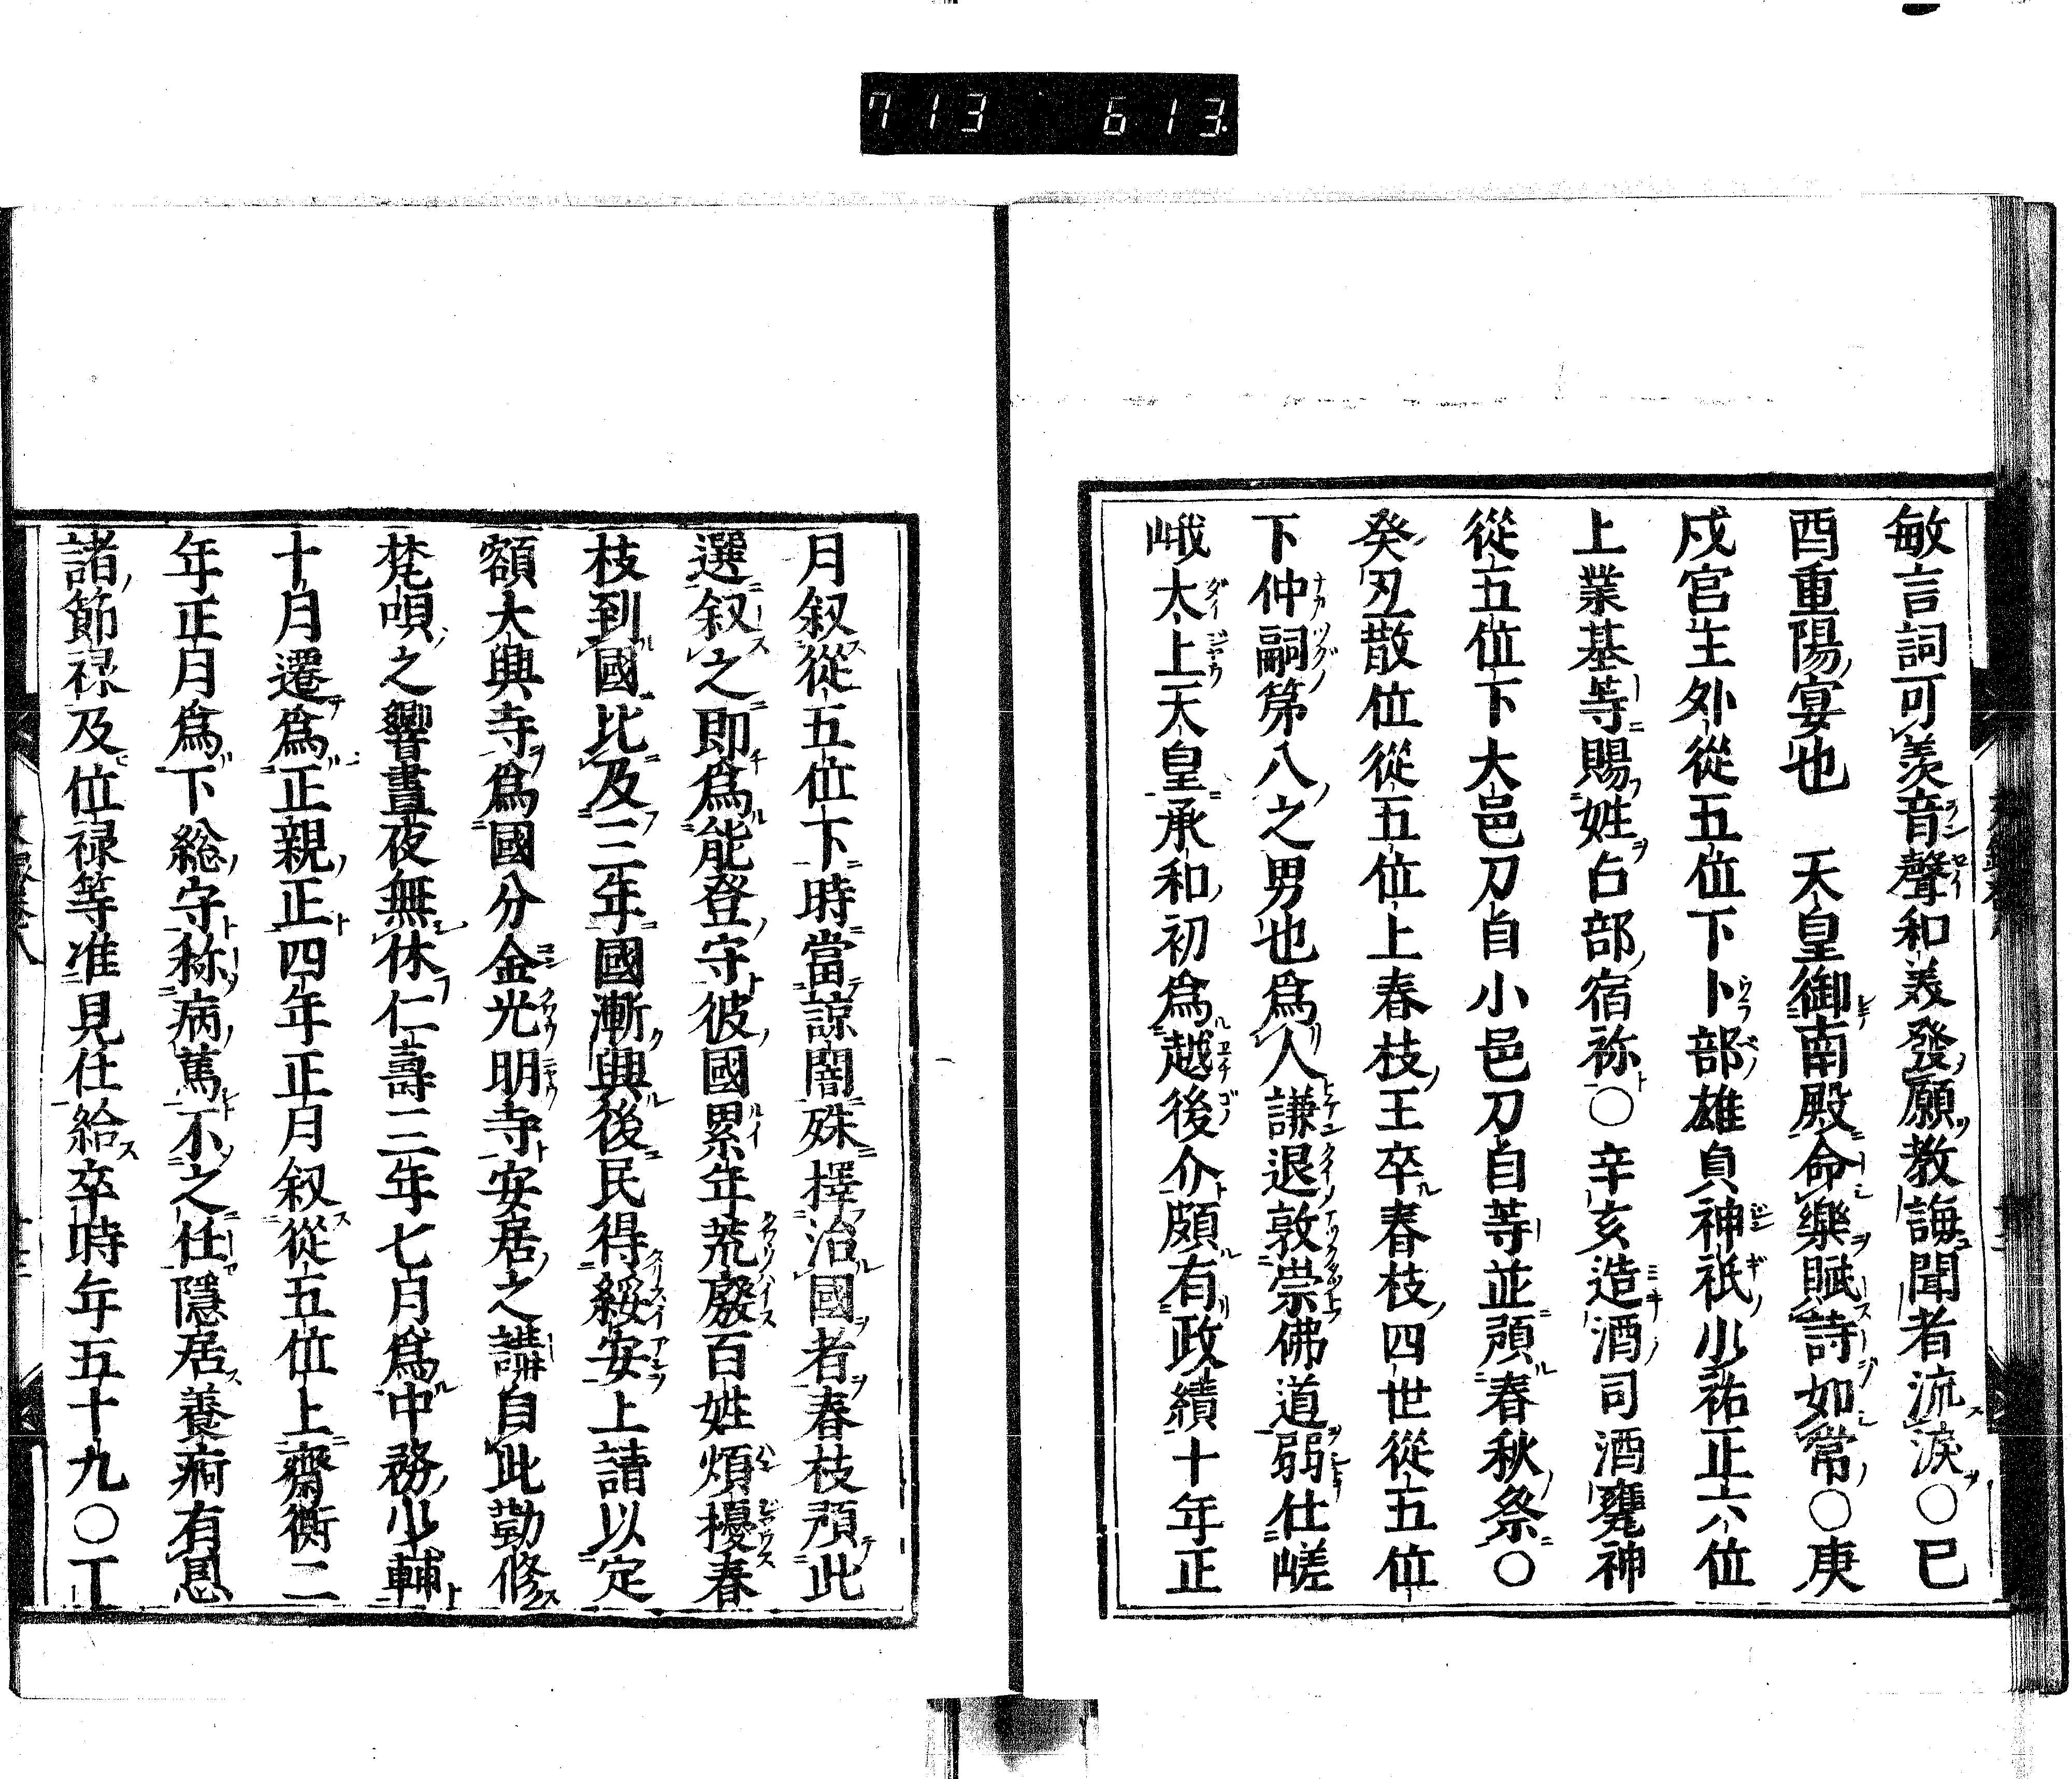 713 613
敏言詞可羨音聲和美發願教誨聞者流涙○已
酉重陽宴也　天皇御南殿命樂賦詩如常○庚
戍宮主外從五位下卜部雄貞神祇少祐正六位
上業基等賜姓占部宿祢○辛亥造酒司酒甕神
從五位下大邑刀自小邑刀自等並預春秋祭○
癸丑散位從五位上春枝王卒春枝四世從五位
下仲嗣第八之男也爲人謙退敦崇佛道弱仕嵯
峨太上天皇承和初爲越後介頗有政績十年正
月叙從五位下時當諒闇殊擇治國者春枝預此
選叙之即爲能登守彼國累年荒廢百姓煩擾春
枝到國比及三年國漸興後民得綏安上請以定
額大興寺爲國分金光明寺安居之講自此勤修
梵唄之響晝夜無休仁壽二年七月爲中務少輔
十月遷爲正親正四年正月叙從五位上齋衡二
年正月爲下総守称病篤不之任隱居養痾有恩
諸節禄及位禄等准見仕給卒時年五十九○丁